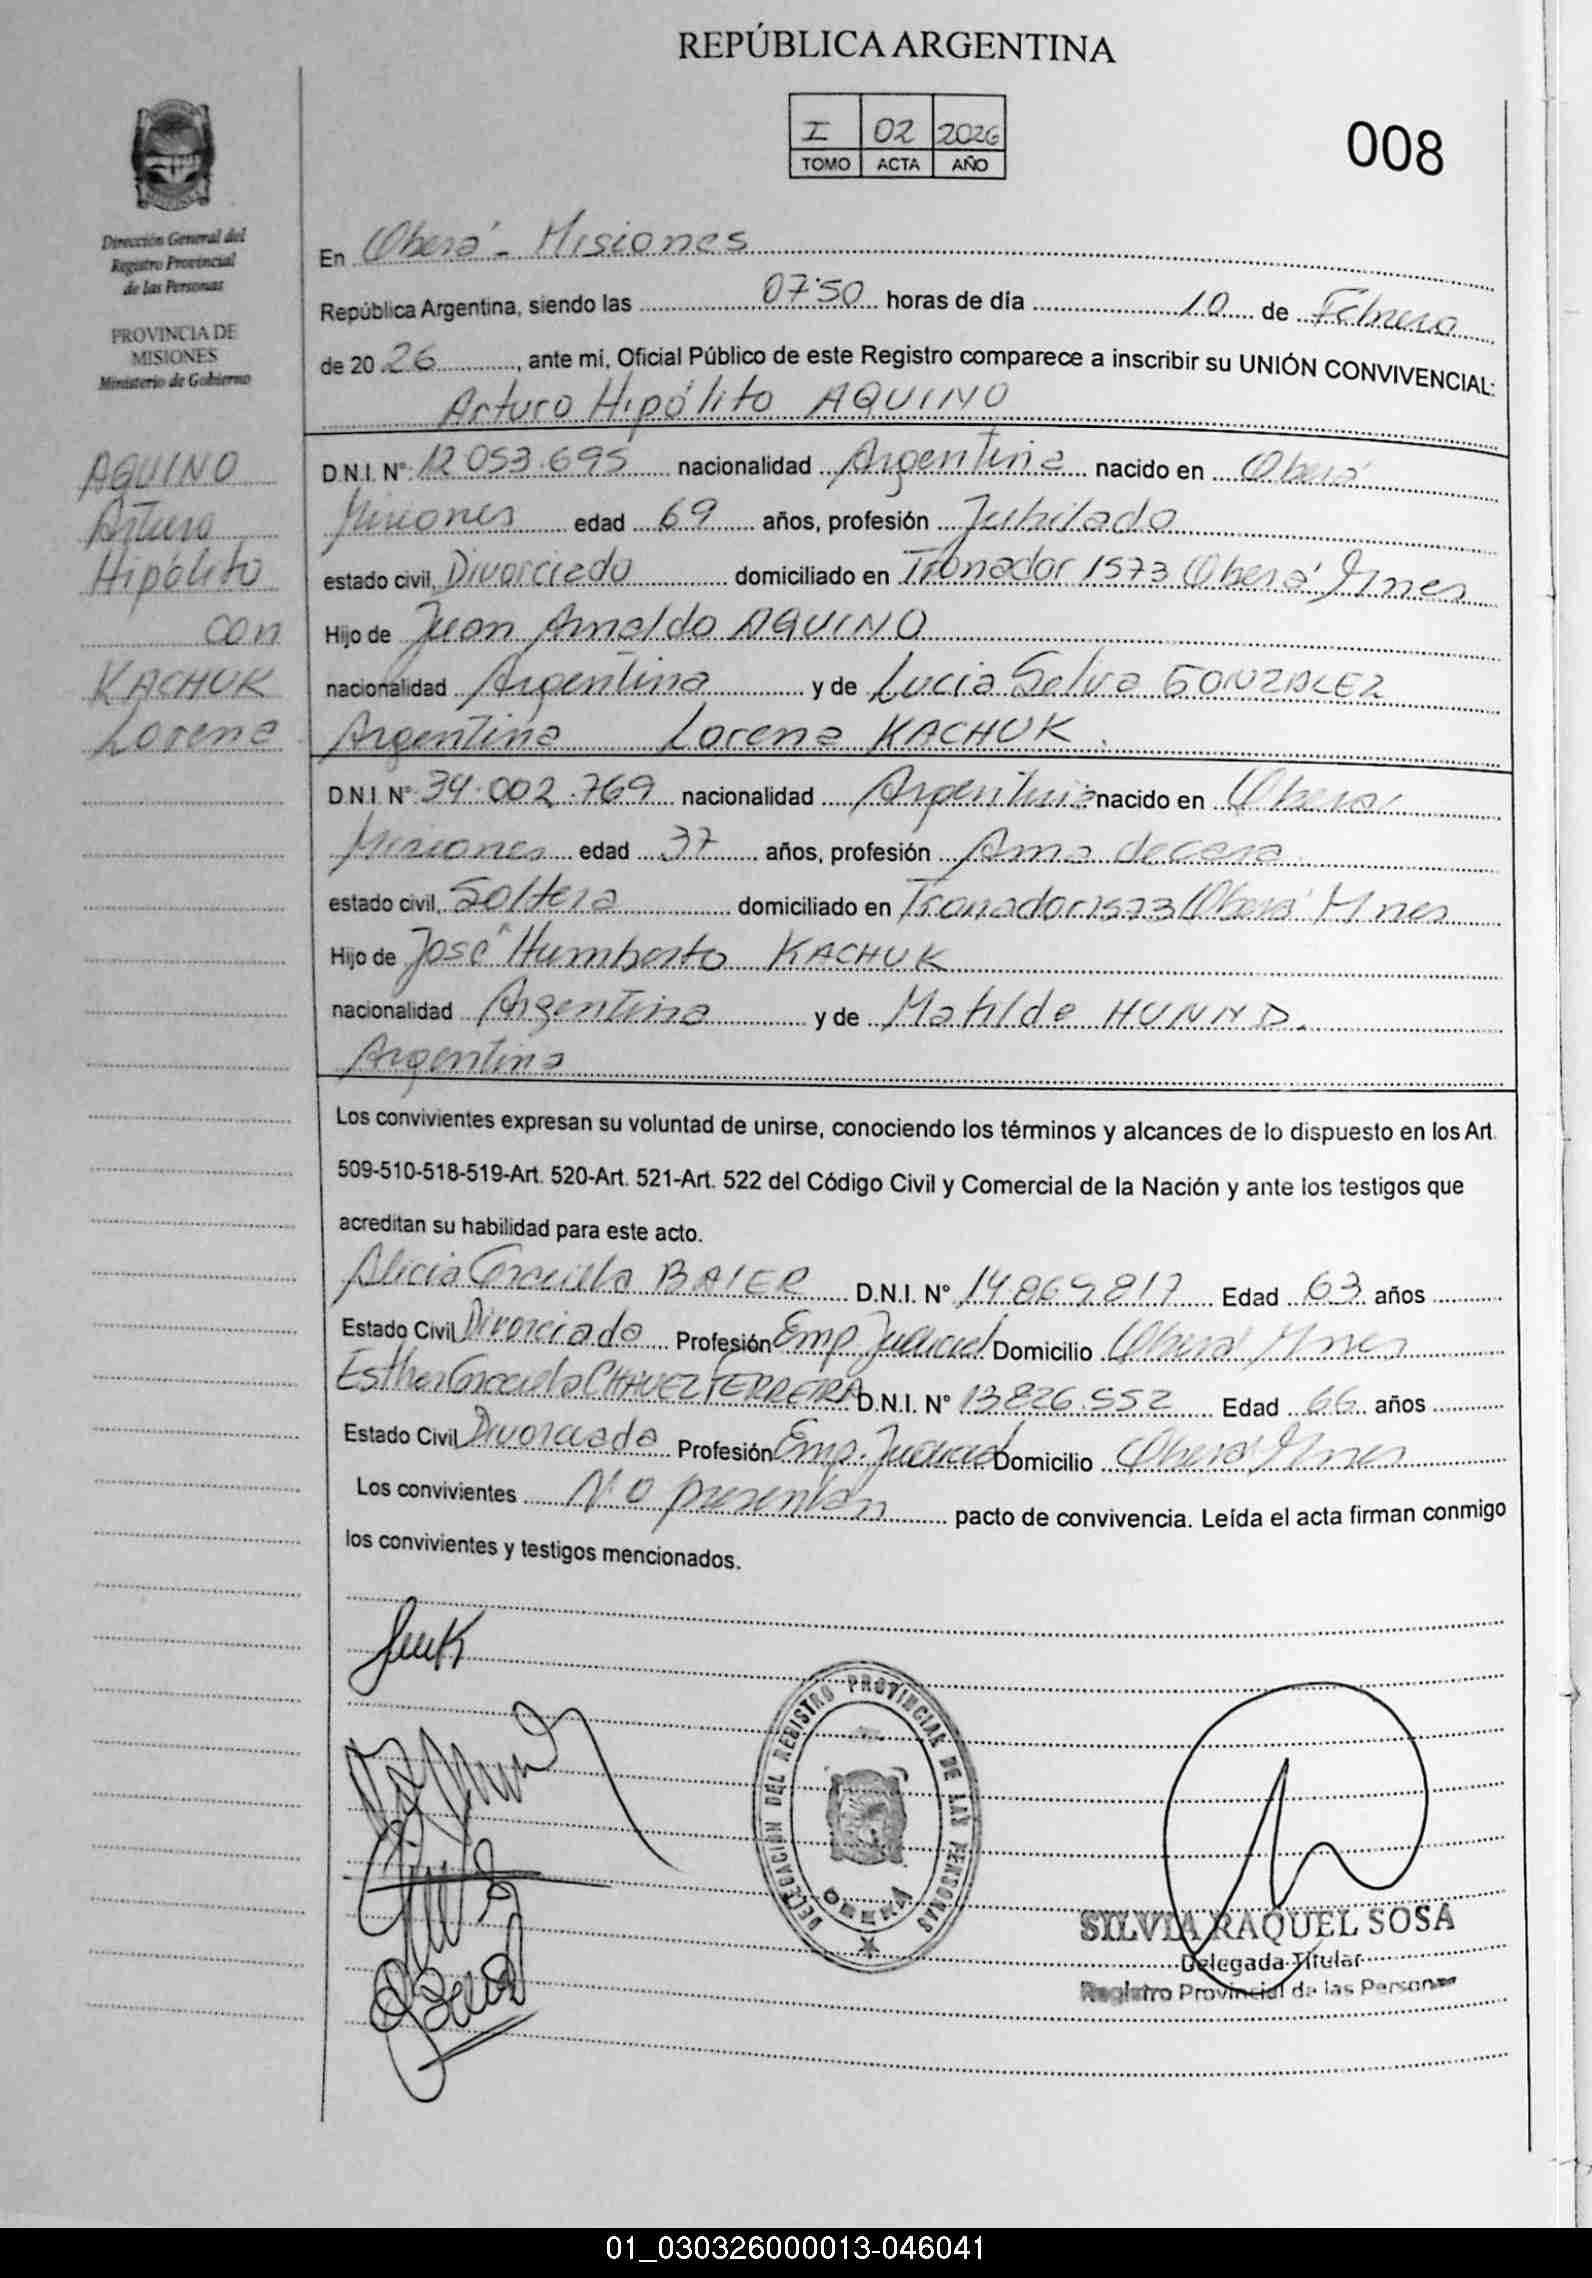 REPÚBLICA ARGENTINA
I 02 2026
TOMO ACTA AÑO
008
Dirección General del
Registro Provincial
de las Personas
PROVINCIA DE
MISIONES
Ministerio de Gobierno
En Oberá - Misiones
República Argentina, siendo las 07:50 horas de día 10 de Febrero
de 20 26, ante mí, Oficial Público de este Registro comparece a inscribir su UNIÓN CONVIVENCIAL:
Arturo Hipólito AQUINO
AQUINO
Arturo
Hipólito
con
KACHUK
Lorena
D.N.I. N° 12.053.695 nacionalidad Argentina nacido en Oberá
Misiones edad 69 años, profesión Jubilado
estado civil, Divorciado domiciliado en Tronador 1573 Oberá Mnes
Hijo de Juan Arnaldo AQUINO
nacionalidad Argentina y de Lucia Selva GONZALEZ
Argentina Lorena KACHUK.
D.N.I. N° 34.002.769 nacionalidad Argentina nacido en Oberá
Misiones edad 37 años, profesión Ama de casa
estado civil, Soltera domiciliado en Tronador 1573 Oberá Mnes
Hijo de José Humberto KACHUK
nacionalidad Argentina y de Matilde
Argentina
Los convivientes expresan su voluntad de unirse, conociendo los términos y alcances de lo dispuesto en los Art.
509-510-518-519-Art. 520-Art. 521-Art. 522 del Código Civil y Comercial de la Nación y ante los testigos que
acreditan su habilidad para este acto.
Alicia Graciela BAIER D.N.I. N° 14.869.817 Edad 63 años
Estado Civil Divorciada Profesión Emp Judicial Domicilio Oberá Mnes
Esther Graciela CHAVEZ FERREIRA D.N.I. N° 13.826.552 Edad 66 años
Estado Civil Divorciada Profesión Emp. Judicial Domicilio Oberá Mnes
Los convivientes No presentan pacto de convivencia. Leída el acta firman conmigo
los convivientes y testigos mencionados.
DELEGACIÓN DEL REGISTRO PROVINCIAL DE LAS PERSONAS
OBERÁ
SILVIA RAQUEL SOSA
Delegada Titular
Registro Provincial de las Personas
01_030326000013-046041